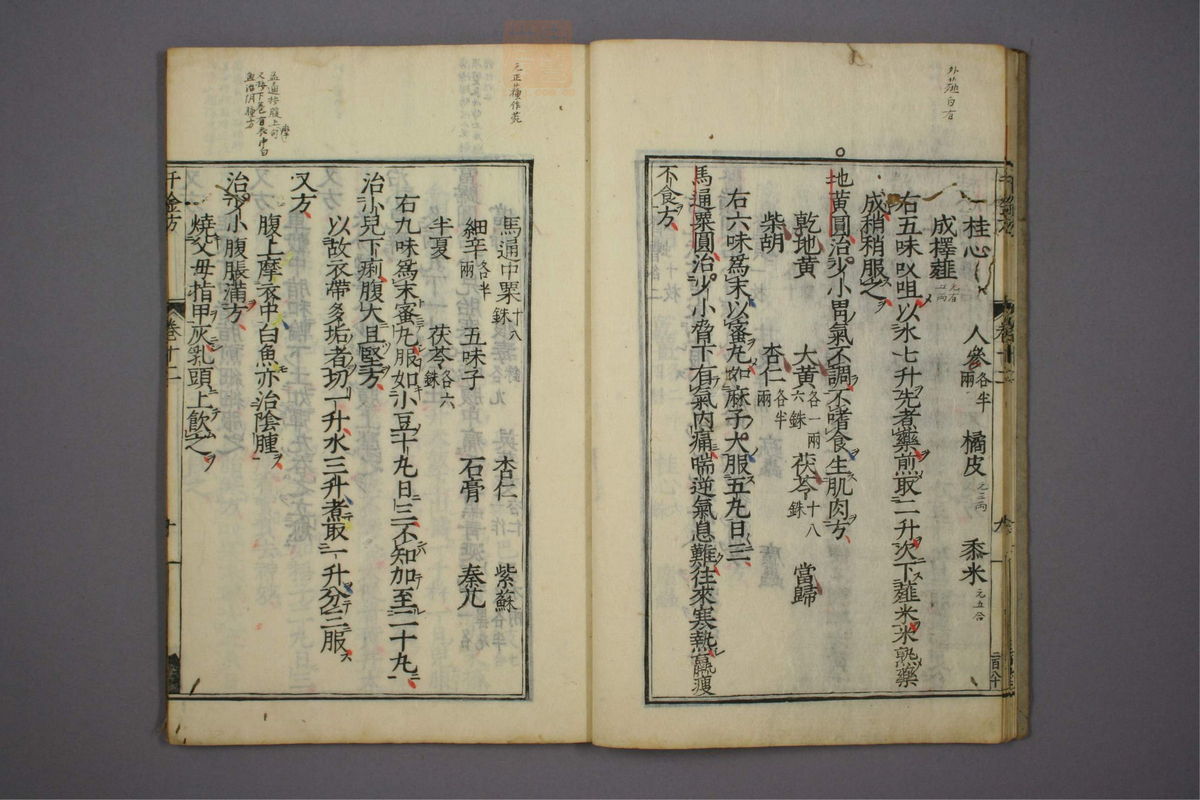 外䑓白有
桂心 人參各半兩 橘皮元二兩 黍米元五合
成擇薤元有二兩
右五味㕮咀以水七升先煮藥煎取二升次下薤米米熟藥
成稍稍服之
地黄圓治少小胃氣不調不嗜食生肌肉方
乾地黄 大黄各一兩六銖 茯苓十八銖 當歸
柴胡 杏仁各半兩
右六味爲末以蜜丸如麻子大服五丸日三
馬通粟圓治少小脅下有氣内痛喘逆氣息難往來寒熱羸瘦
不食方
馬通中粟十八銖 杏仁 紫蘇
細辛各半兩 五味子 石膏 秦艽
半夏 茯苓各六銖
右九味爲末蜜丸服如小豆十丸日三不知加至二十丸
治小兒下痢腹大且堅方
以故衣帶多垢者切一升水三升煮取一升分三服
又方
腹上摩衣中白魚亦治陰腫
治少小腹脹滿方
燒父母指甲灰乳頭上飲之
千金方 卷十二